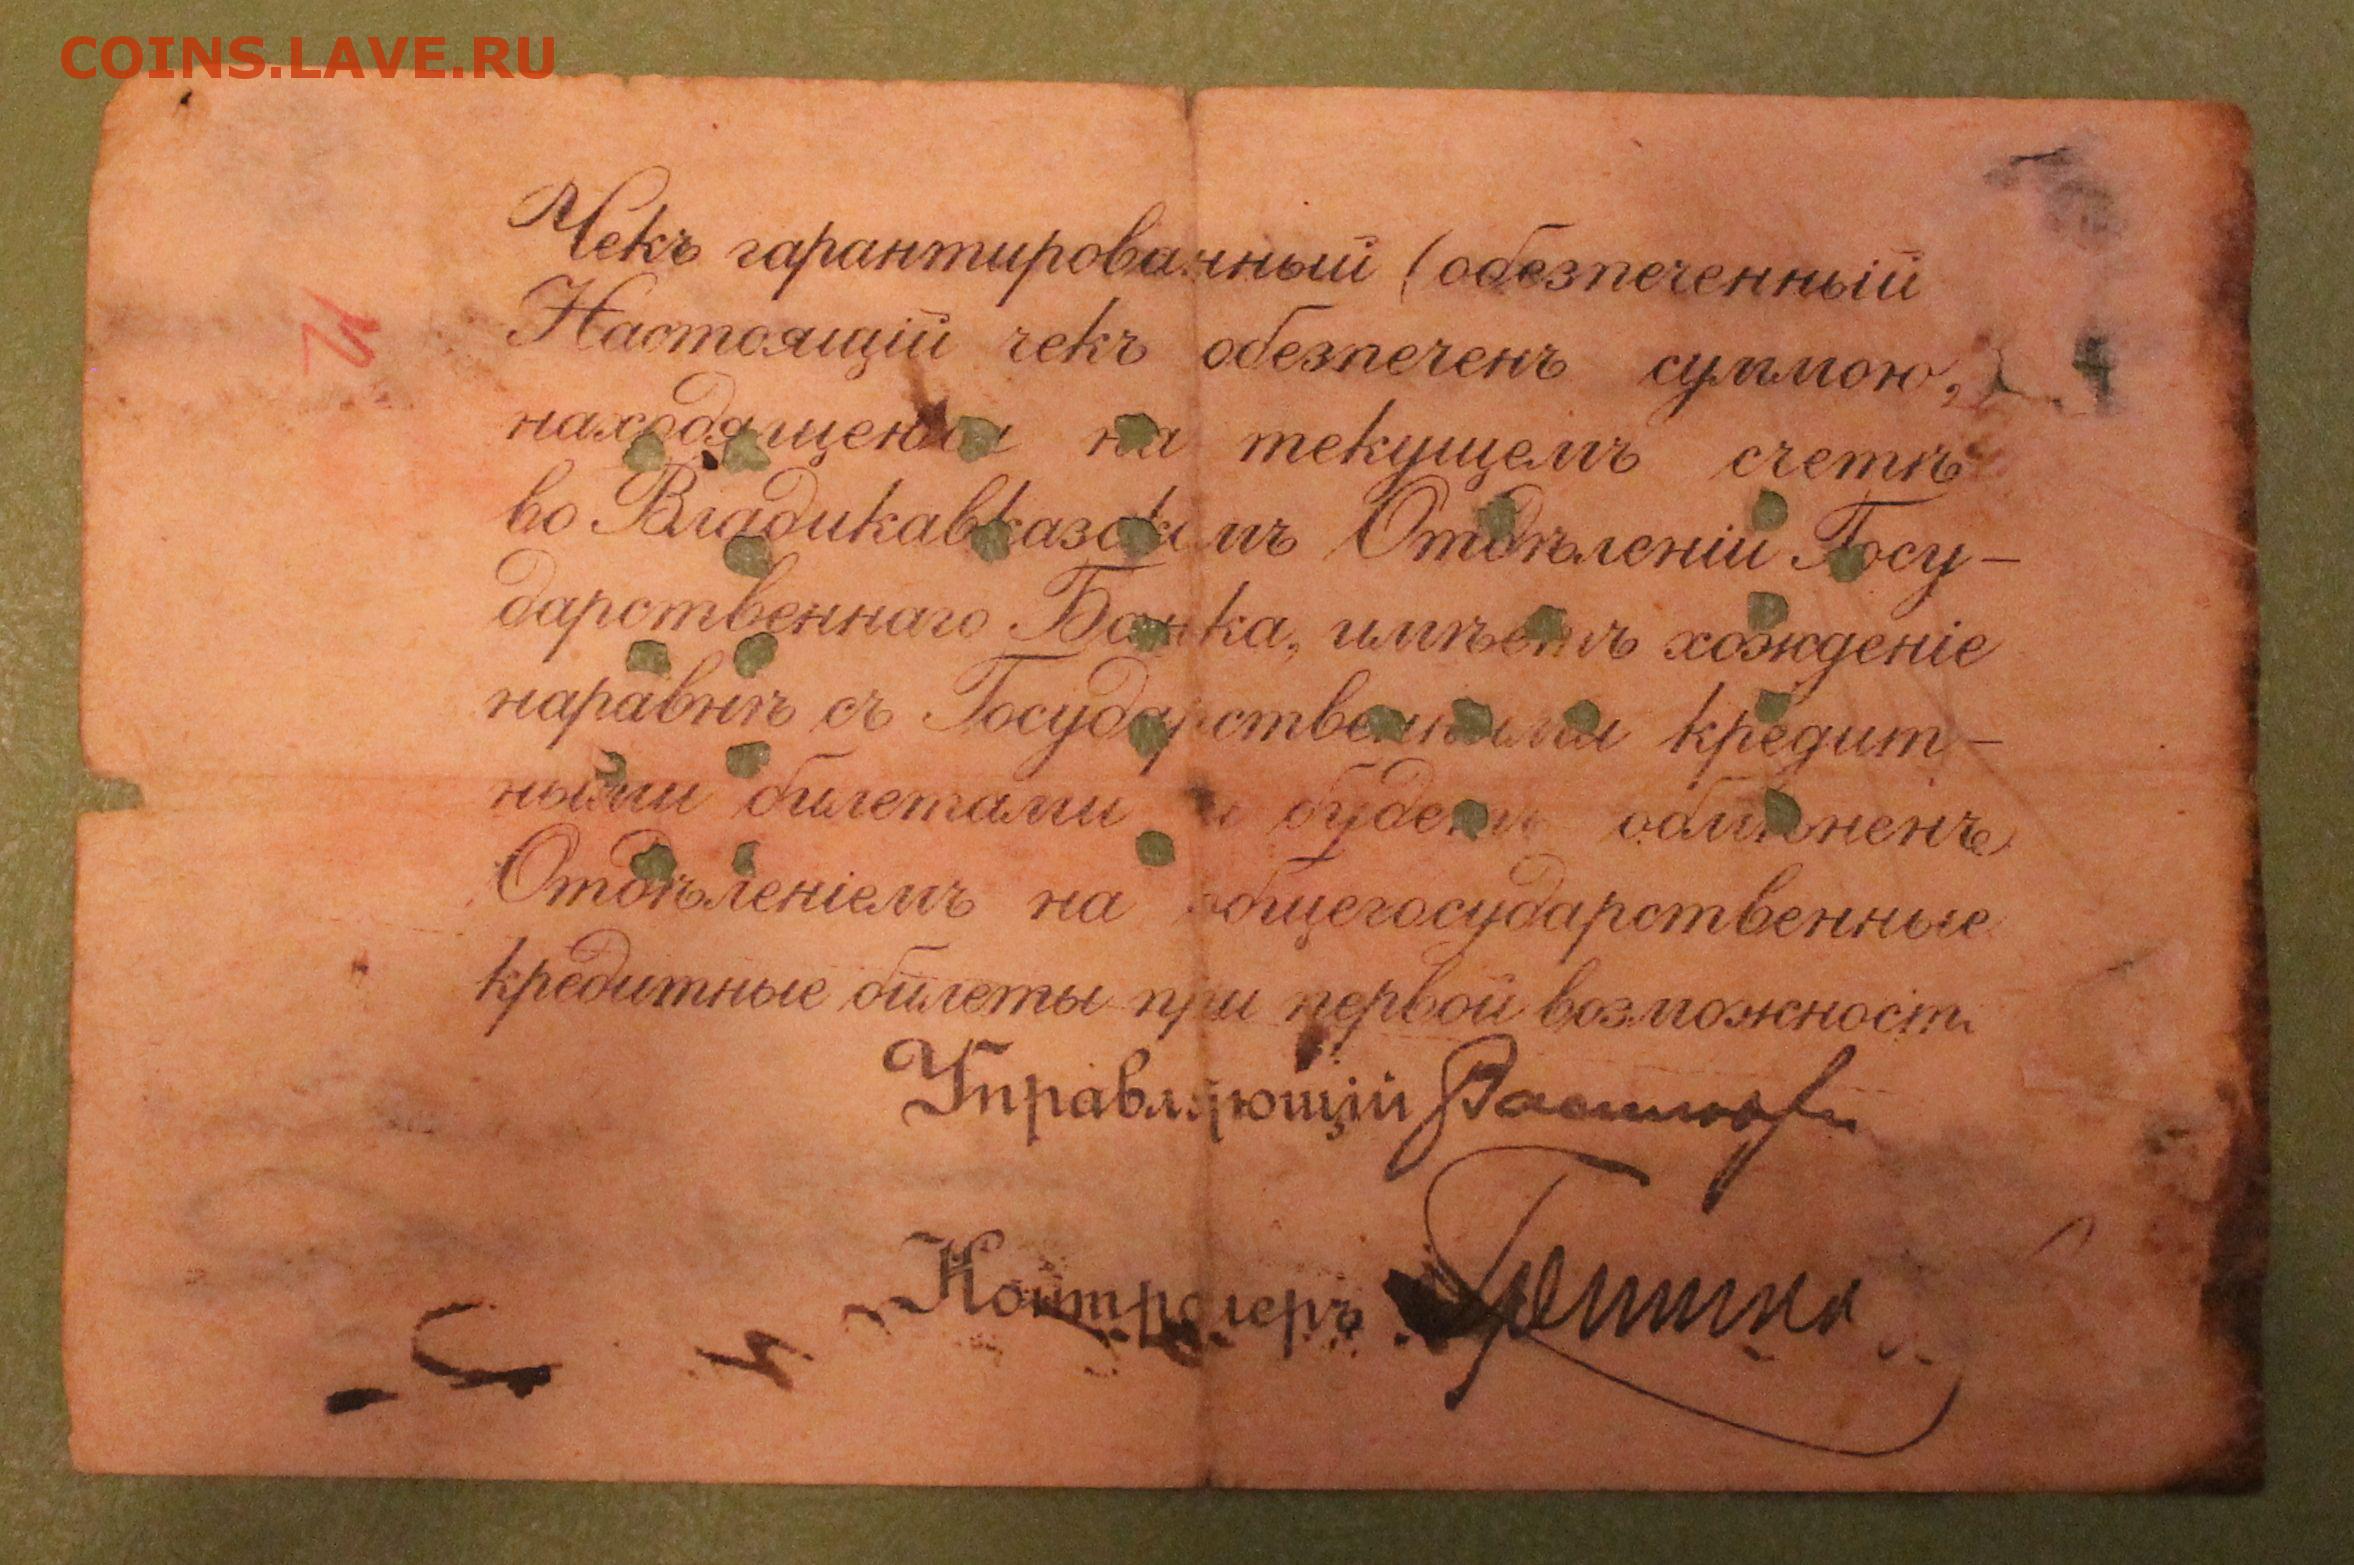 COINS.LAVE.RU
Чекъ гарантированный (обезпеченный
Настоящій чекъ обезпеченъ суммою,
находящеюся на текущемъ счетѣ
во Владикавказскимъ Отдѣленіи Госу-
дарственнаго Банка, имѣетъ хожденіе
наравнѣ съ Государственными кредит-
ными билетами и будетъ обмѣненъ
Отдѣленіемъ на общегосударственные
кредитные билеты при первой возможност.
Управляющій
Контролеръ